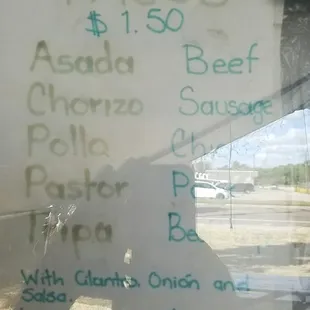 $1.50
Asada Beef
Chorizo Sausage
Pollo
Pastor
Tripa
With Cilantro, Onion and
Salsa.